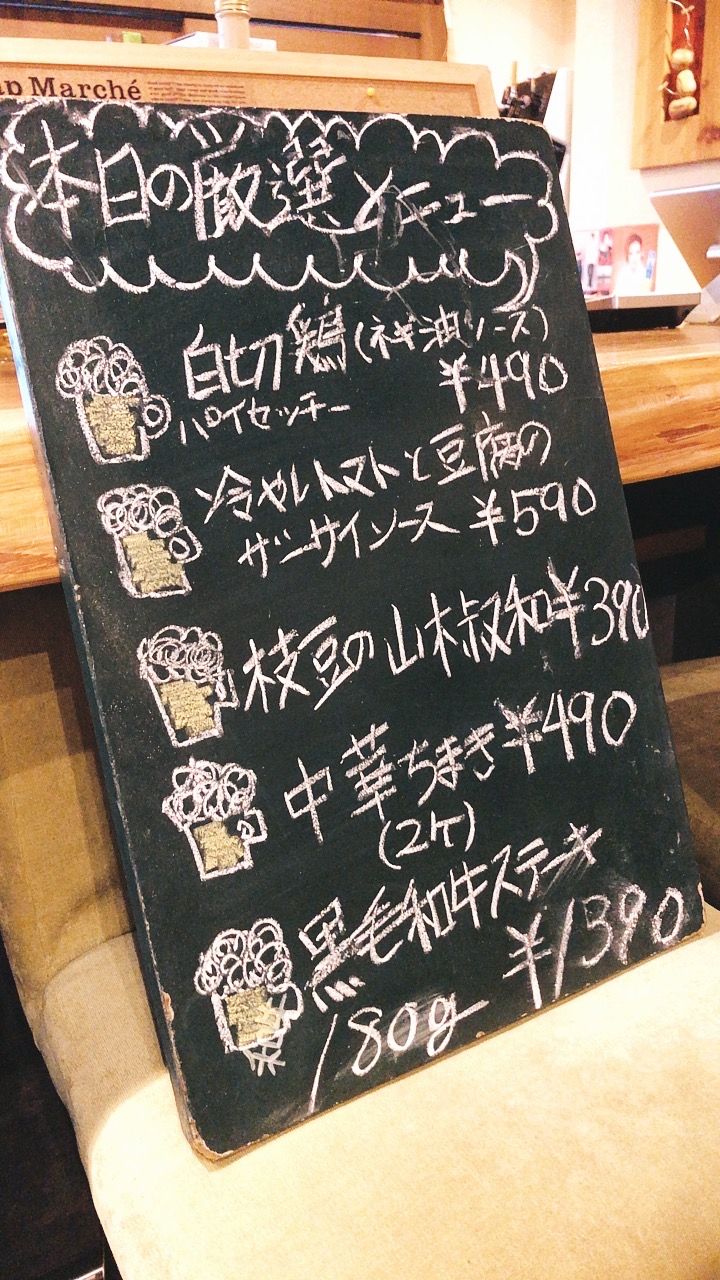 ap Marché
本日の厳選メニュー
白切鶏(ネギ油ソース)
パイセッチー ¥490
冷やしトマトと豆腐の
ザーサイソース ¥590
枝豆の山椒和¥390
中華ちまき¥490
(2ケ)
黒毛和牛ステーキ
180g ¥1390